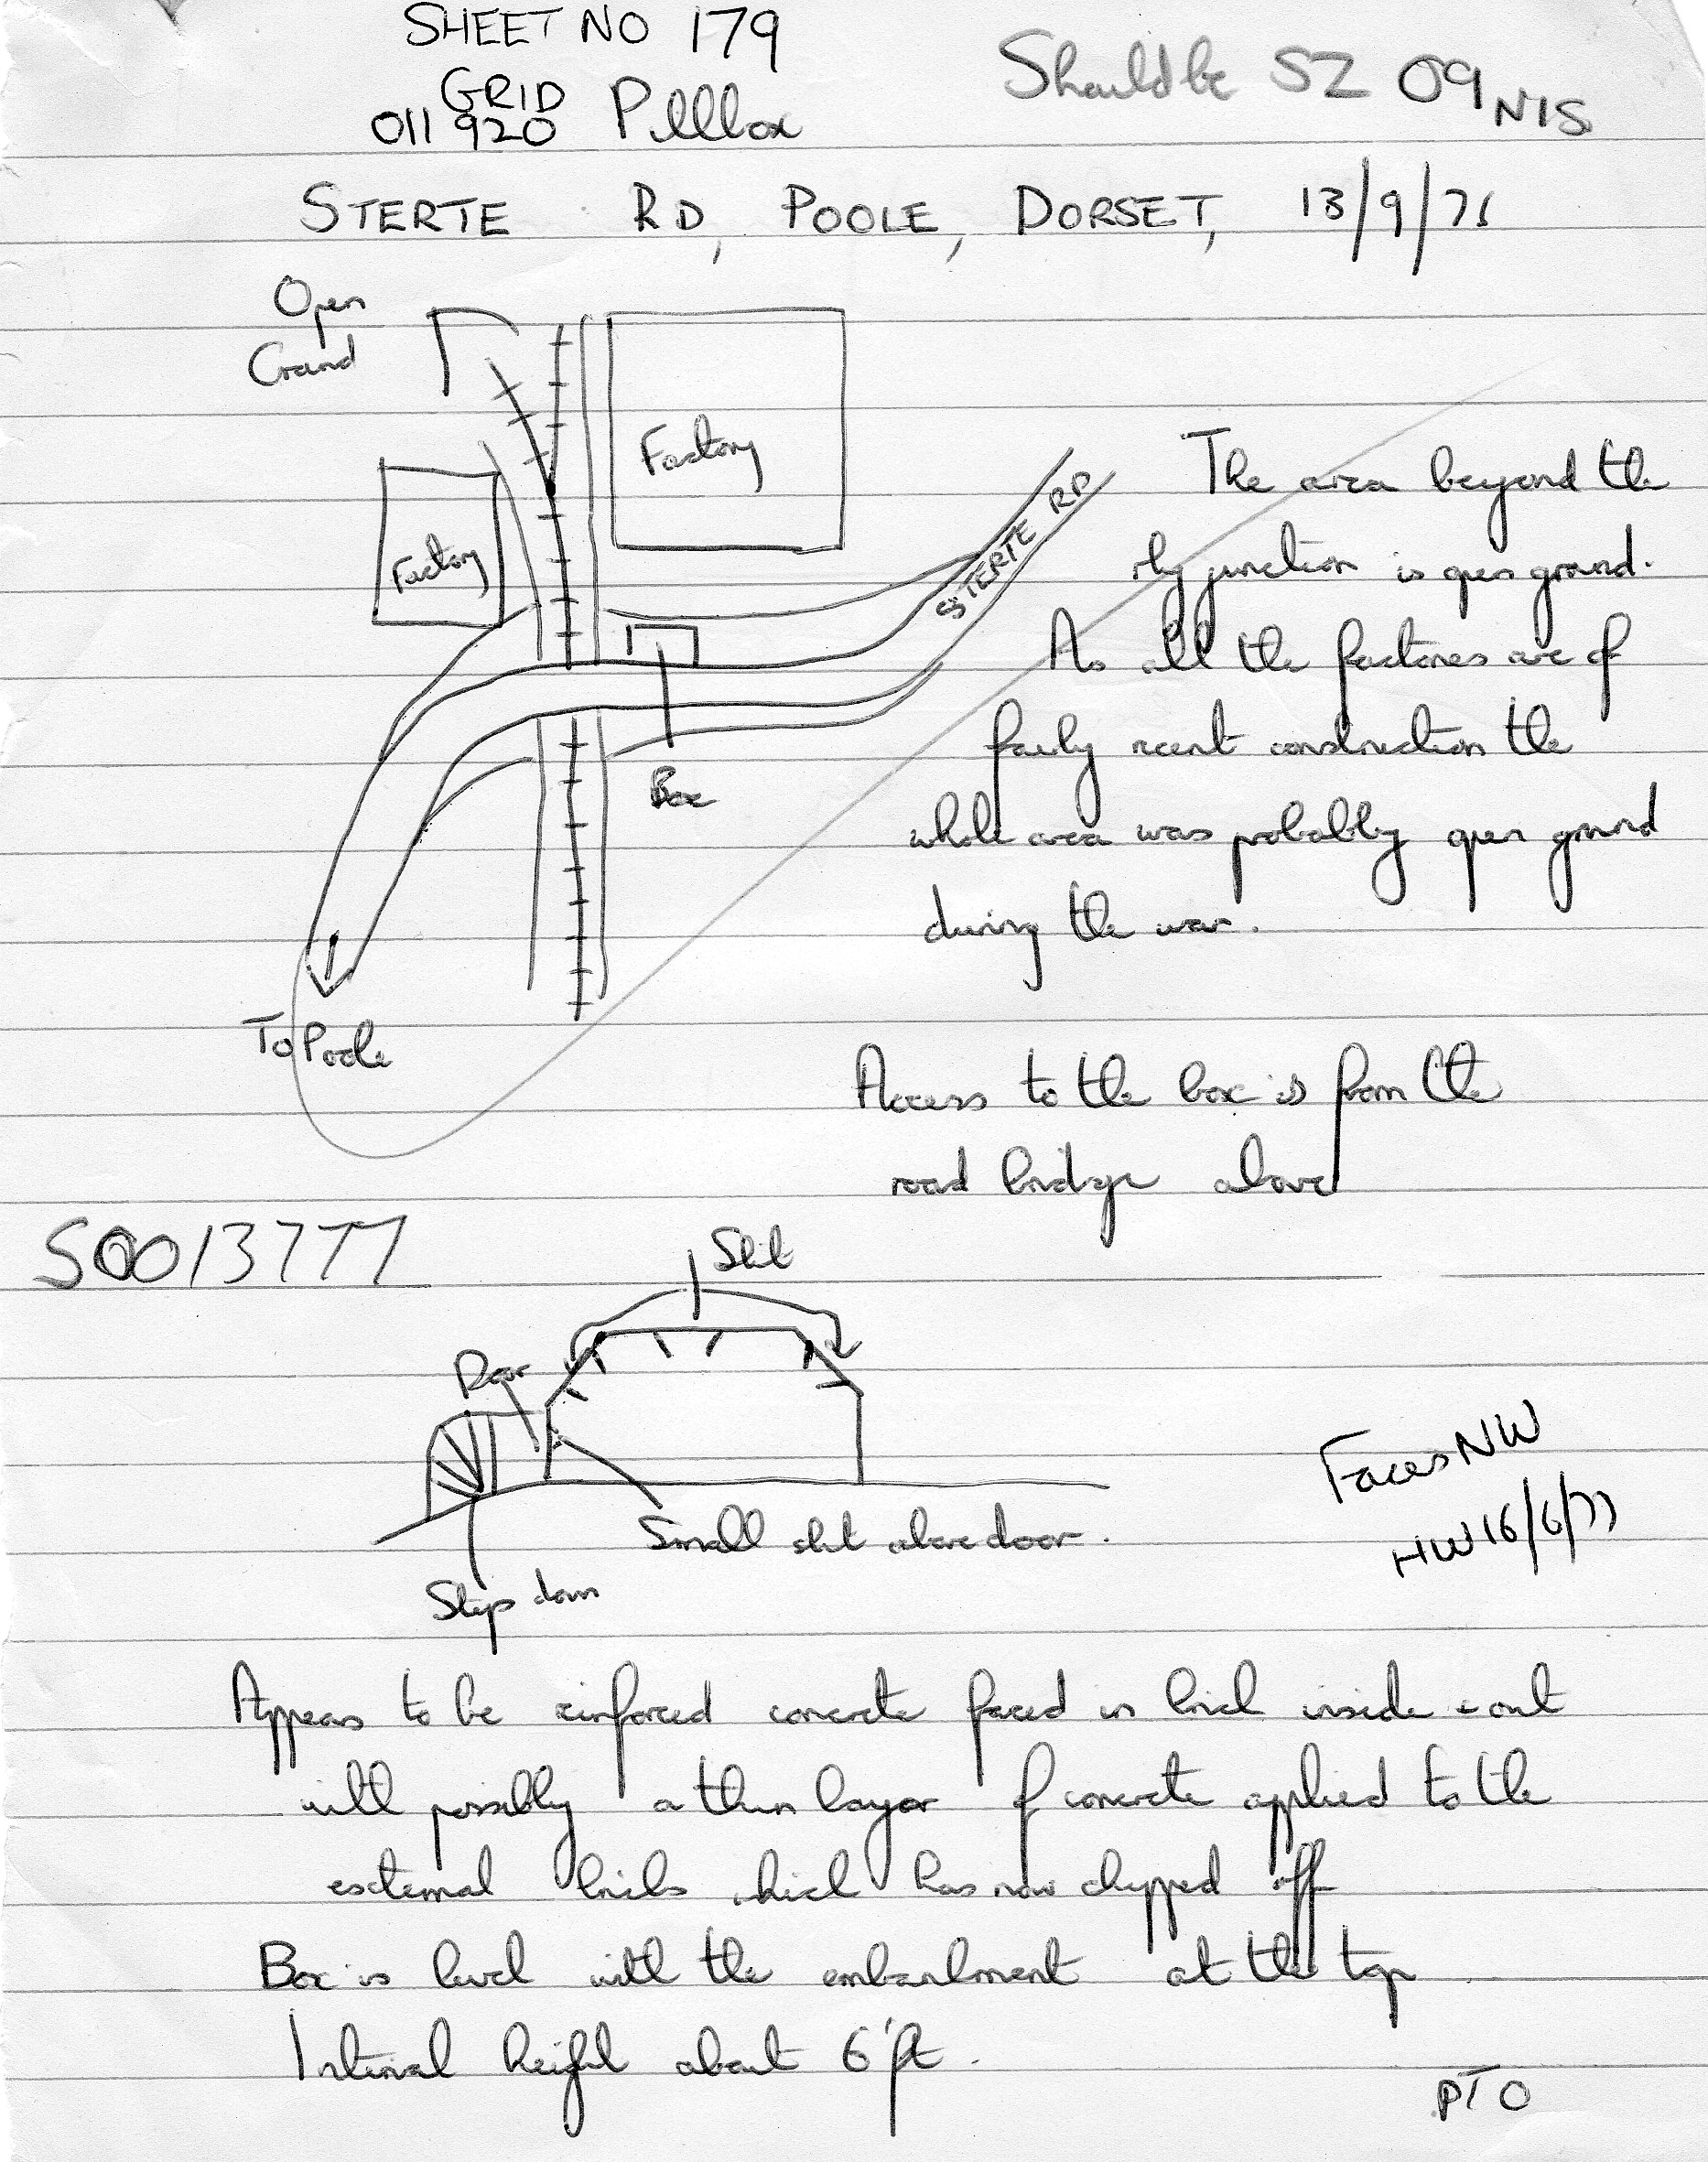 SHEET NO 179
GRID
011 920 Pillbox
Should be SZ 09 NIS
STERTE RD, POOLE, DORSET, 13/9/76
Open
Ground
Factory
Factory
STERTE RD
Box
To Poole
The area beyond the
rly junction is open ground.
As all the factories are of
fairly recent construction the
whole area was probably open ground
during the war.
Access to the box is from the
road bridge above
S0013777
Slit
Door
Small slit above door.
Steps down
Faces NW
HW 16/6/77
Appears to be reinforced concrete faced in brick inside + out
with possibly a thin layer of concrete applied to the
external bricks which has now chipped off
Box is level with the embankment at the top
Internal height about 6'ft.
PTO